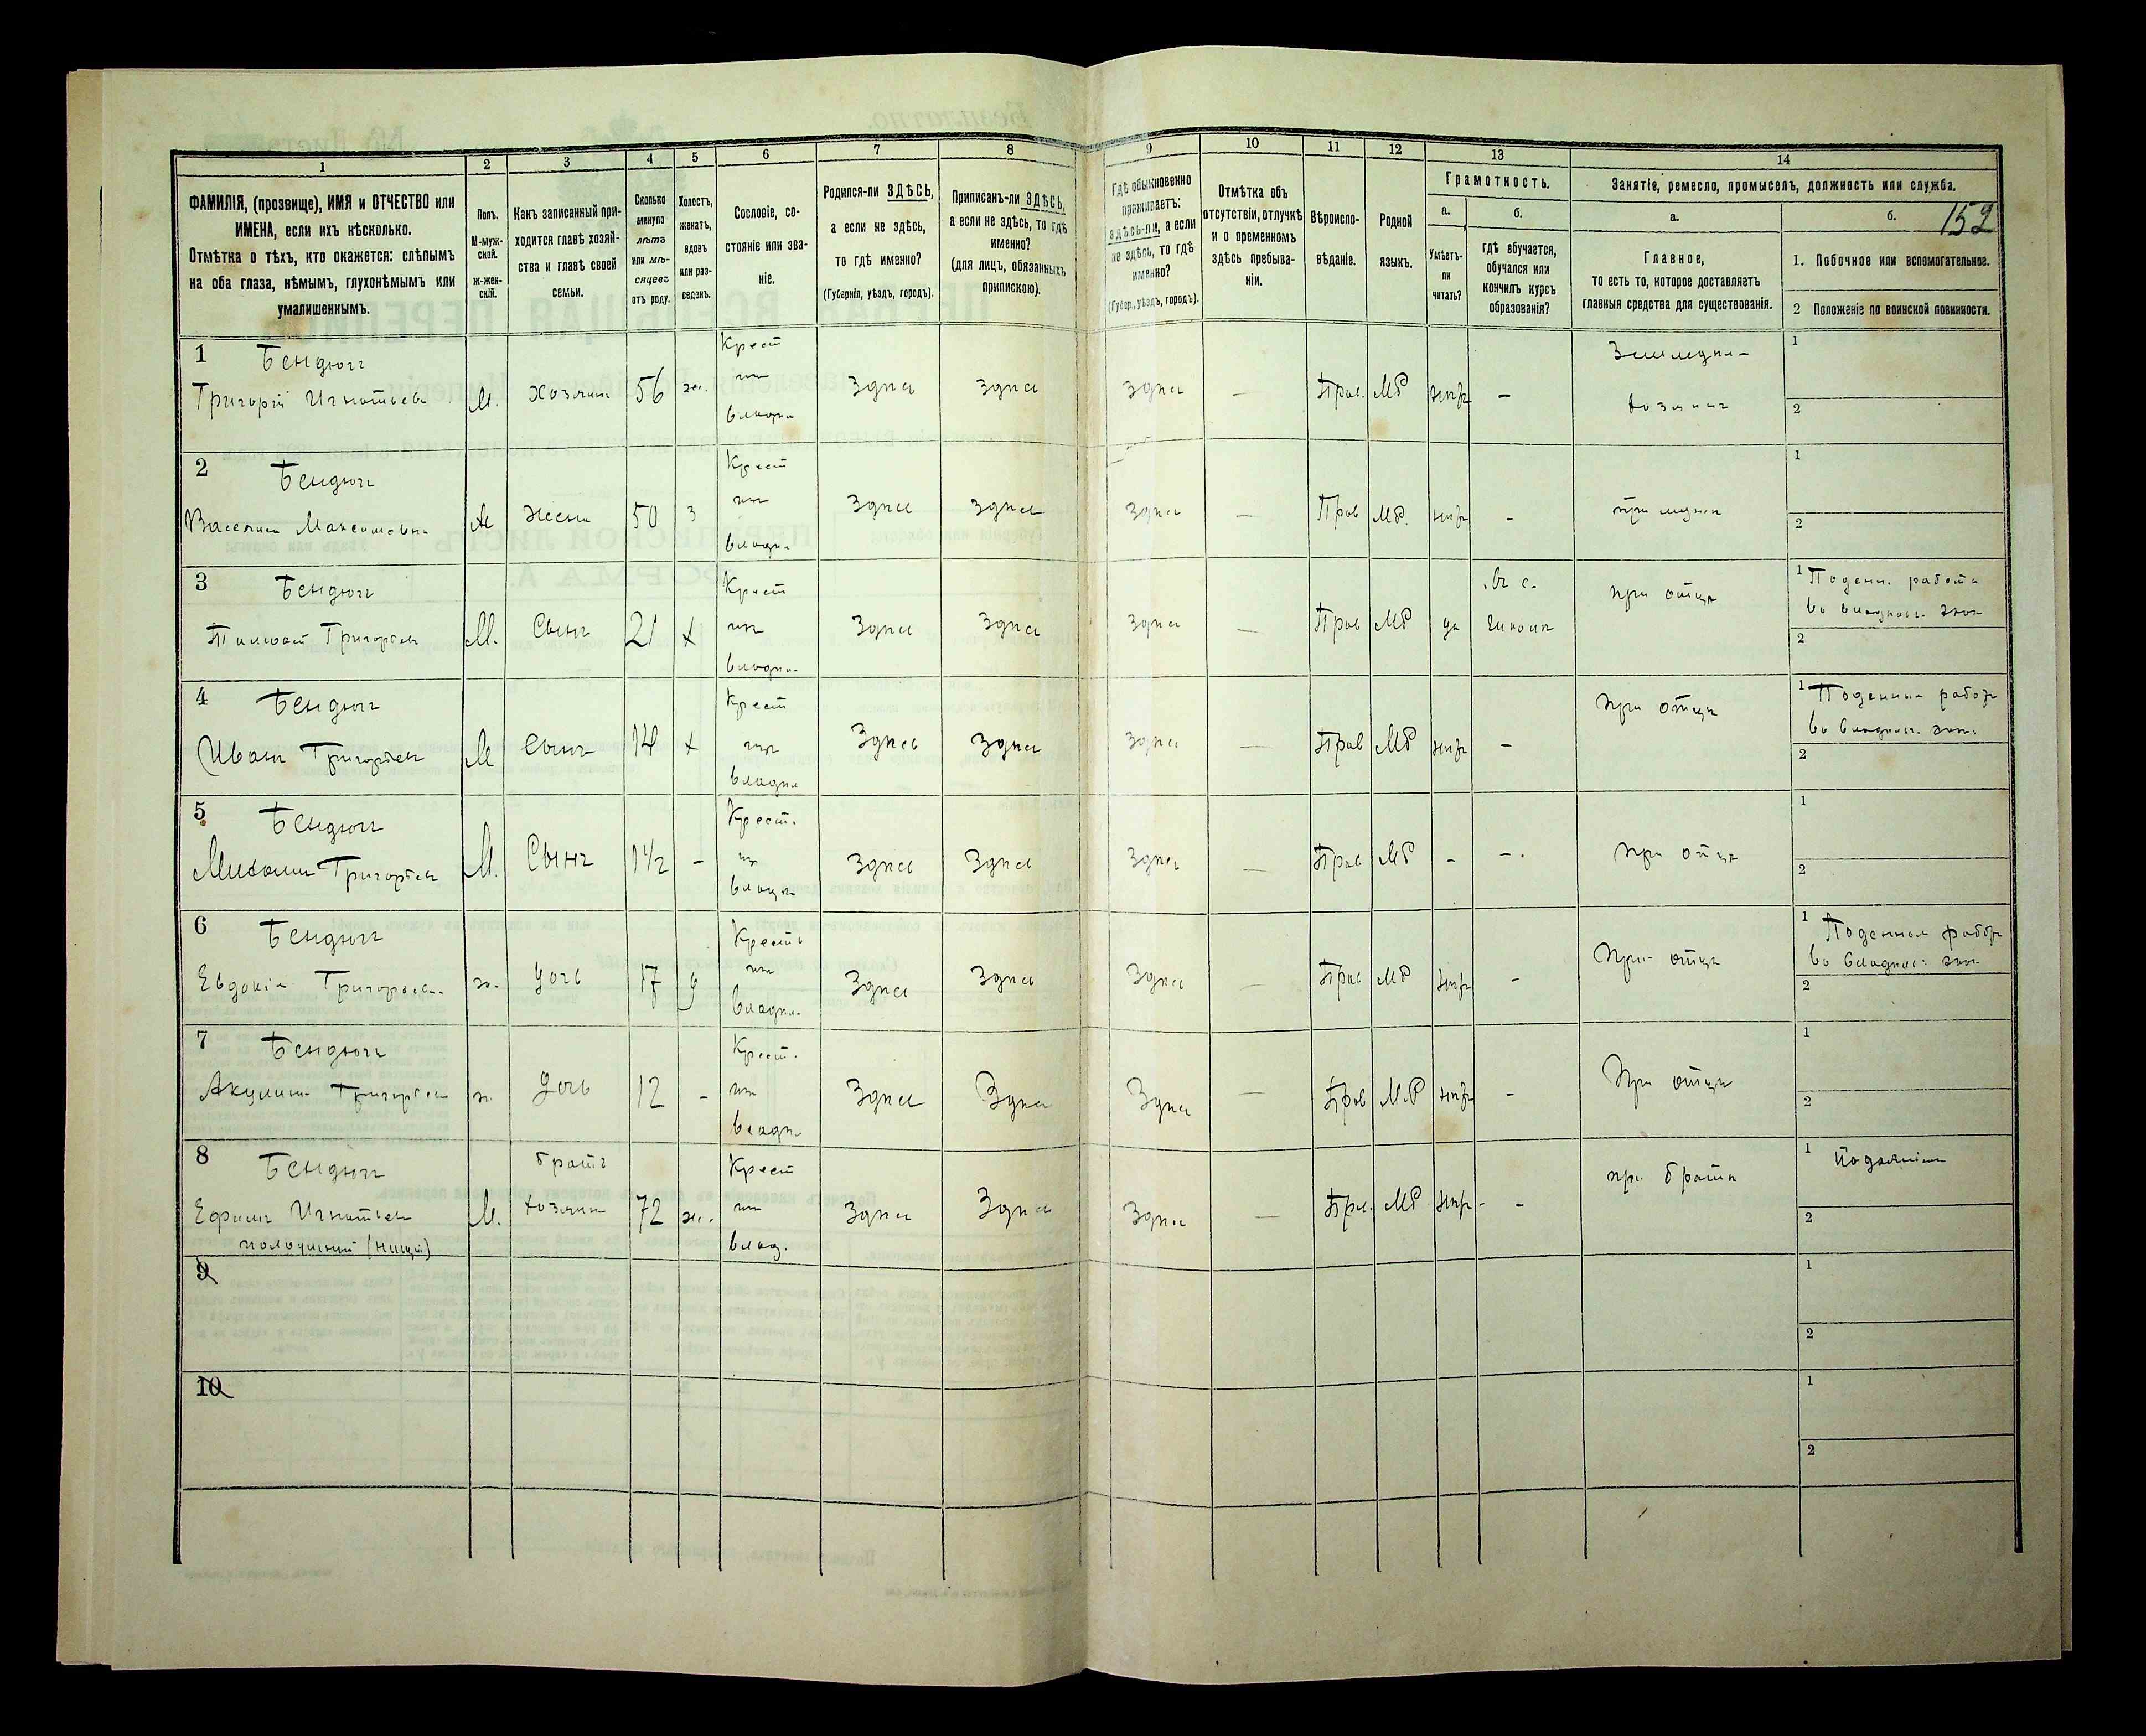 152
1 2 3 4 5 6 7 8 9 10 11 12 13 14
ФАМИЛІЯ, (прозвище), ИМЯ и ОТЧЕСТВО или
ИМЕНА, если ихъ нѣсколько.
Отмѣтка о тѣхъ, кто окажется: слѣпымъ
на оба глаза, нѣмымъ, глухонѣмымъ или
умалишеннымъ.
Полъ.
М-муж-
ской.
Ж-жен-
скій.
Какъ записанный при-
ходится главѣ хозяй-
ства и главѣ своей
семьи.
Сколько
минуло
лѣтъ
или мѣ-
сяцевъ
отъ роду.
Холостъ,
женатъ,
вдовъ
или раз-
веденъ.
Сословіе, со-
стояніе или зва-
ніе.
Родился-ли ЗДѢСЬ,
а если не здѣсь,
то гдѣ именно?
(Губернія, уѣздъ, городъ).
Приписанъ-ли ЗДѢСЬ,
а если не здѣсь, то гдѣ
именно?
(для лицъ, обязанныхъ
припискою).
Гдѣ обыкновенно
проживаетъ:
здѣсь-ли, а если
не здѣсь, то гдѣ
именно?
(Губер., уѣздъ, городъ).
Отмѣтка объ
отсутствіи, отлучкѣ
и о временномъ
здѣсь пребыва-
ніи.
Вѣроиспо-
вѣданіе.
Родной
языкъ.
Грамотность.
а.
Умѣетъ-
ли
читать?
б.
гдѣ обучается,
обучался или
кончилъ курсъ
образованія?
Занятіе, ремесло, промыселъ, должность или служба.
а.
Главное,
то есть то, которое доставляетъ
главныя средства для существованія.
б.
1. Побочное или вспомогательное.
2 Положеніе по воинской повинности.
1 Бендюгъ
Григорій Игнатьевъ
М. хозяинъ 56 ж.
Крест
изъ
владѣл
Здѣсь Здѣсь Здѣсь — Прав. МР негр –
Земледѣл–
хозяинъ
1
2
2 Бендюгъ
Василиса Максимовна
ж жена 50 з
Крест
изъ
владѣл
Здѣсь Здѣсь Здѣсь — Прав МР. негр -
при мужѣ
1
2
3 Бендюгъ
Тимофей Григорьевъ
М. Сынъ 21 х
Крест
изъ
владѣл.
Здѣсь Здѣсь Здѣсь — Прав МР да
въ с.
школѣ
при отцѣ
1 Поденн. работа
во владѣльч. экон
2
4 Бендюгъ
Иванъ Григорьевъ
М сынъ 14 х
Крест
изъ
владѣл
Здѣсь Здѣсь Здѣсь — Прав МР негр –
при отцѣ
1 Поденная работа
во владѣльч. экон.
2
5 Бендюгъ
Михаилъ Григорьевъ
М. Сынъ 1 1/2 -
Крест.
изъ
владѣл
Здѣсь Здѣсь Здѣсь — Прав МР - -.
при отцѣ
1
2
6 Бендюгъ
Евдокія Григорьев.
ж. дочь 17 д
Крестъ
изъ
владѣл.
Здѣсь Здѣсь Здѣсь — Прав МР негр -
при отцѣ
1 Поденная работа
во владѣльч: экон
2
7 Бендюгъ
Акулина Григорьевъ
ж. дочь 12 -
Крест.
изъ
владѣл
Здѣсь Здѣсь Здѣсь — Прав М.Р негр -
При отцѣ
1
2
8 Бендюгъ
Ефимъ Игнатьевъ
(нищій)
М.
братъ
хозяина
72 ж.
Крест
изъ
влад.
Здѣсь Здѣсь Здѣсь — Прав. МР негр -
при братѣ
1 Подаянiе
2
9
1
2
10
1
2